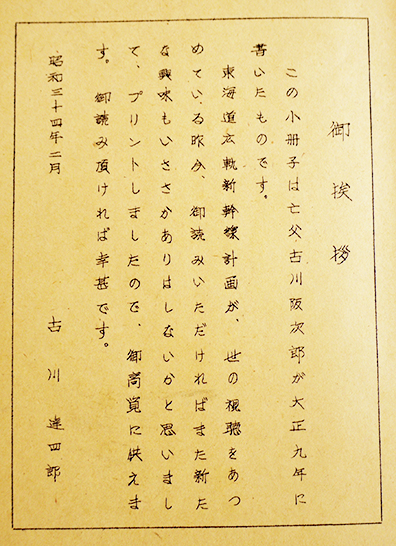 御挨拶
この小冊子は亡父古川阪次郎が大正九年に
書いたものです。
東海道広軌新幹線計画が、世の視聴をあつ
めている昨今、御読みいただければまた新た
な興味もいささかありはしないかと思いまし
て、プリントしましたので、御高覧に供えま
す。御読み頂ければ幸甚です。
昭和三十四年二月
古川達四郎